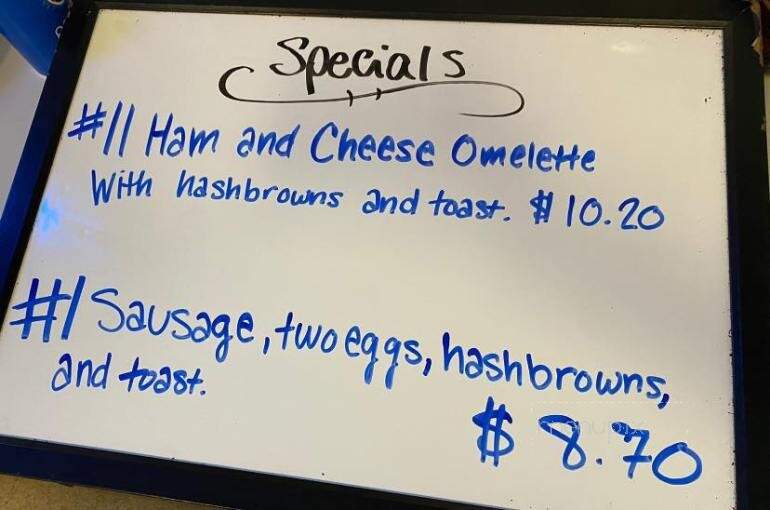 Specials
#11 Ham and Cheese Omelette
With hashbrowns and toast. $10.20
#1 Sausage, two eggs, hashbrowns,
and toast.
$8.70